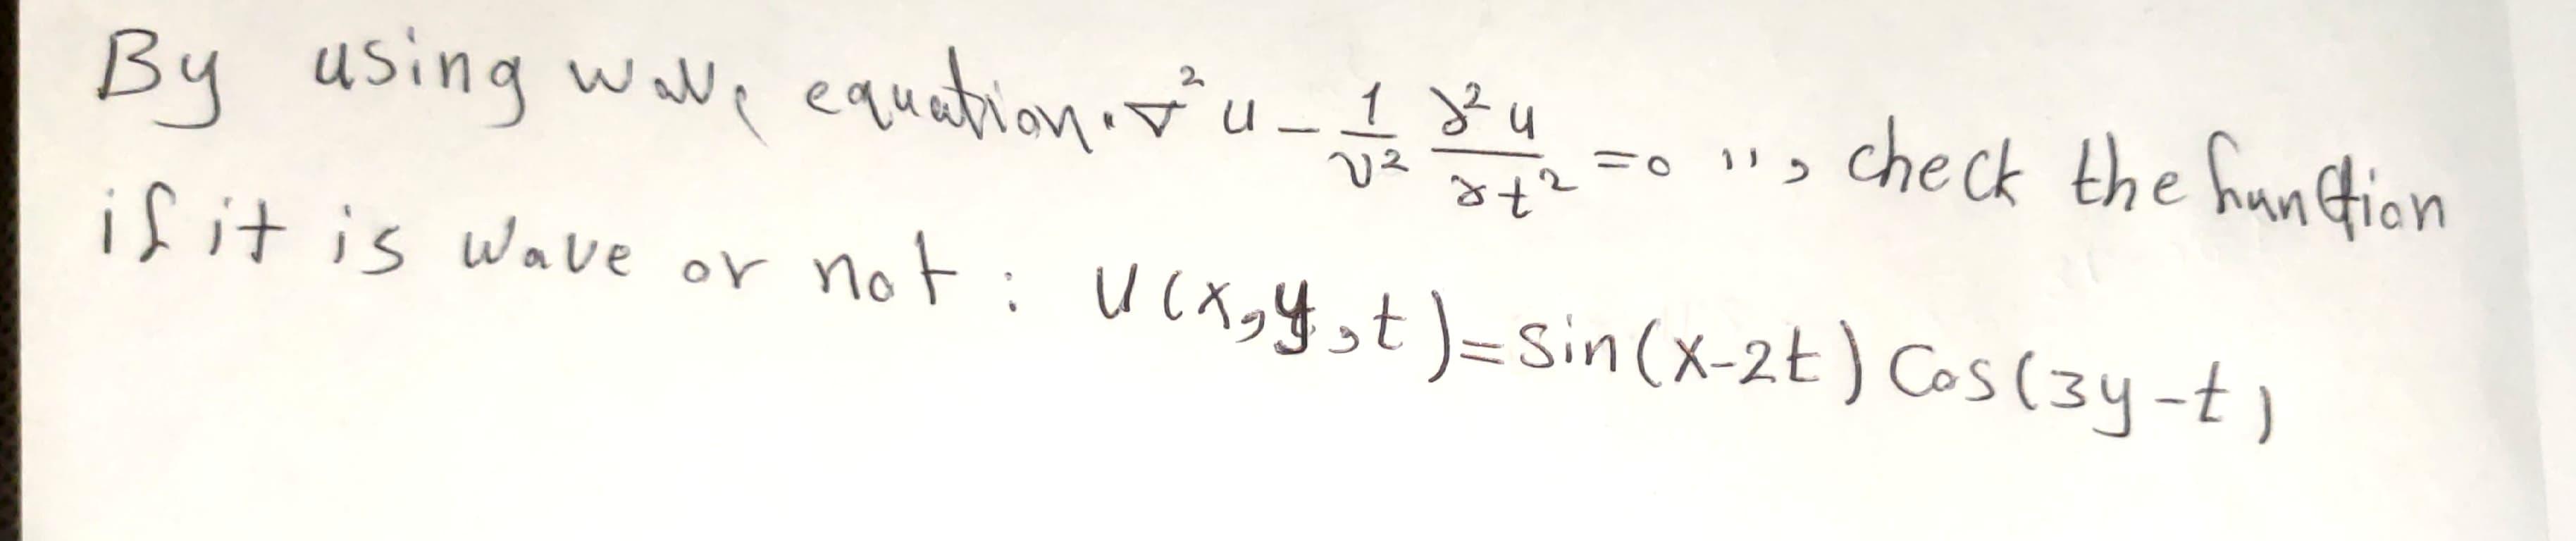 By using wave equation "∇²u - 1/v² ∂²u/∂t² = 0", check the function
if it is wave or not : U(x,y,t)=sin(x-2t) Cos(3y-t)